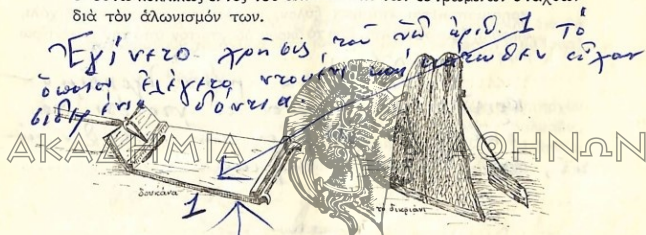 διὰ τὸν ἁλωνισμόν των.
Ἐγίνετο χρῆσις τοῦ ὑπ' ἀριθ. 1 τὸ
ὁποῖον ἐλέγετο ντουένι καὶ κάτωθεν εἶχαν
σιδερένια δόντια.
ΑΚΑΔΗΜΙΑ ΑΘΗΝΩΝ
δουκάνα
1
το δικριάνι